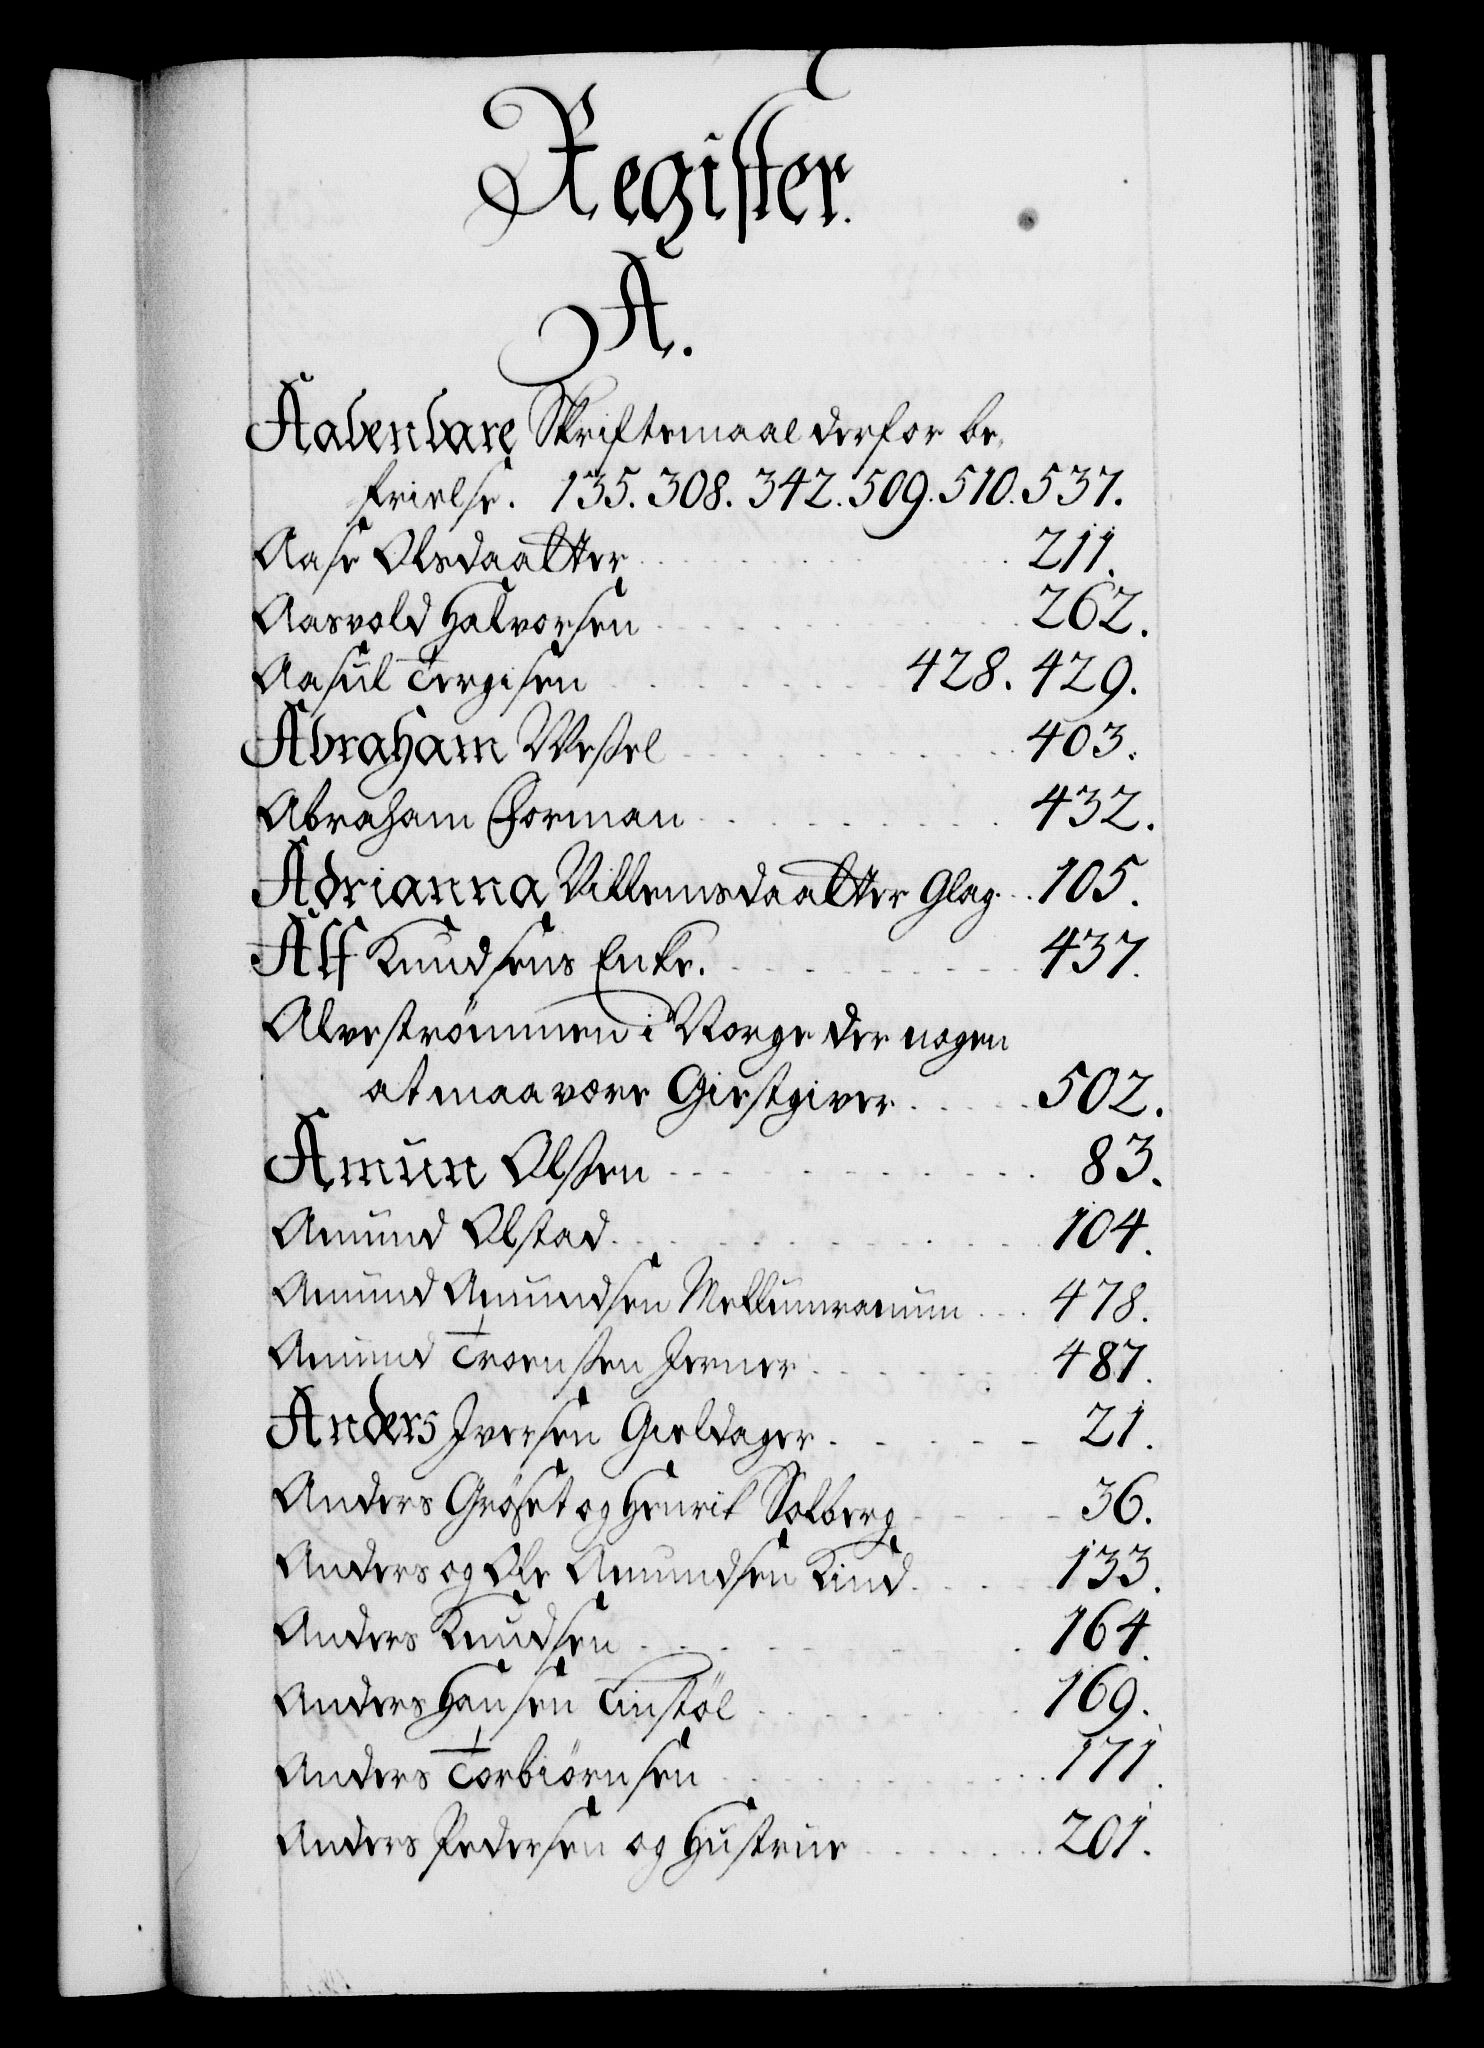 Register.
A.
Aabenbare Skriftemaal derfor be-
frielse. 135. 308. 342. 509. 510. 537.
Aase Olsdaatter 211.
Aasvold Halvorsen 262.
Aasül Tergisen 428. 429.
Abraham Wessel 403.
Abraham Borman 432.
Adrianna Villemsdaatter Glag 105.
Alf Knudsens Enke. 437.
Alveströmmen i Norge der nogen
at maa være Giestgiver 502.
Amün Olssen 83.
Amünd Olstad 104.
Amünd Amündsen 478.
Amünd Troenssen Jerner 487.
Anders Iversen Gieldager 21.
Anders Gröset og Henrik Solberg 36.
Anders og Ole Amundsen Lind 133.
Anders Knudsen 164.
Anders Hansen Tinstöl 169.
Anders Torbiörnsen 171.
Anders Pedersen og Hüstrue 201.